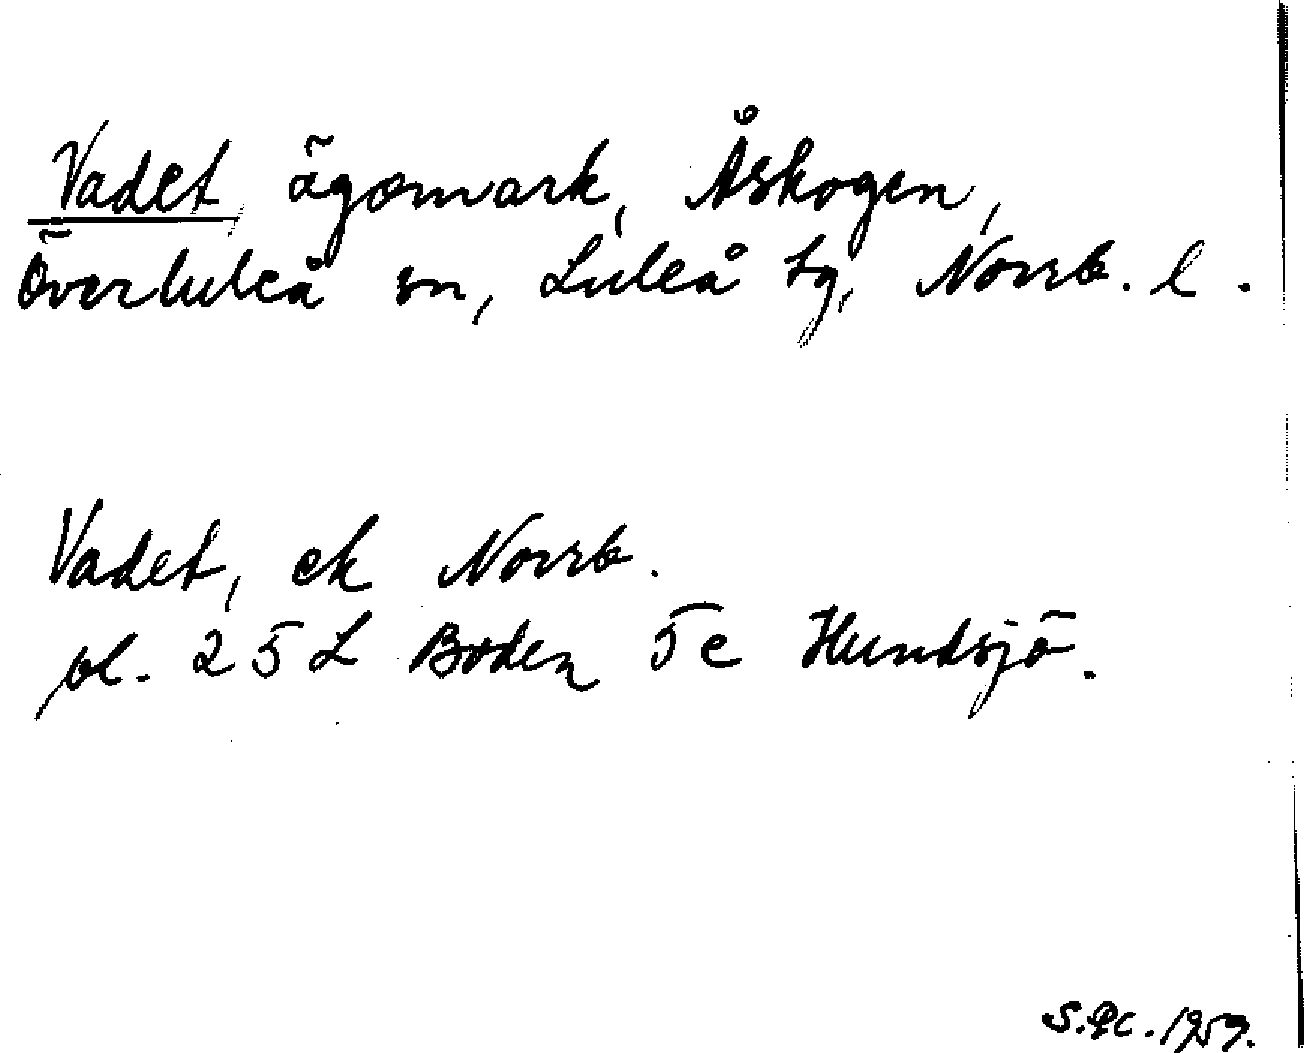 Vadet ägomark, Åskogen,
Överluleå sn, Luleå tg, Norrb. l.
Vadet, ek Norrb.
bl. 25 L Boden 5 c Hundsjö.
1959.